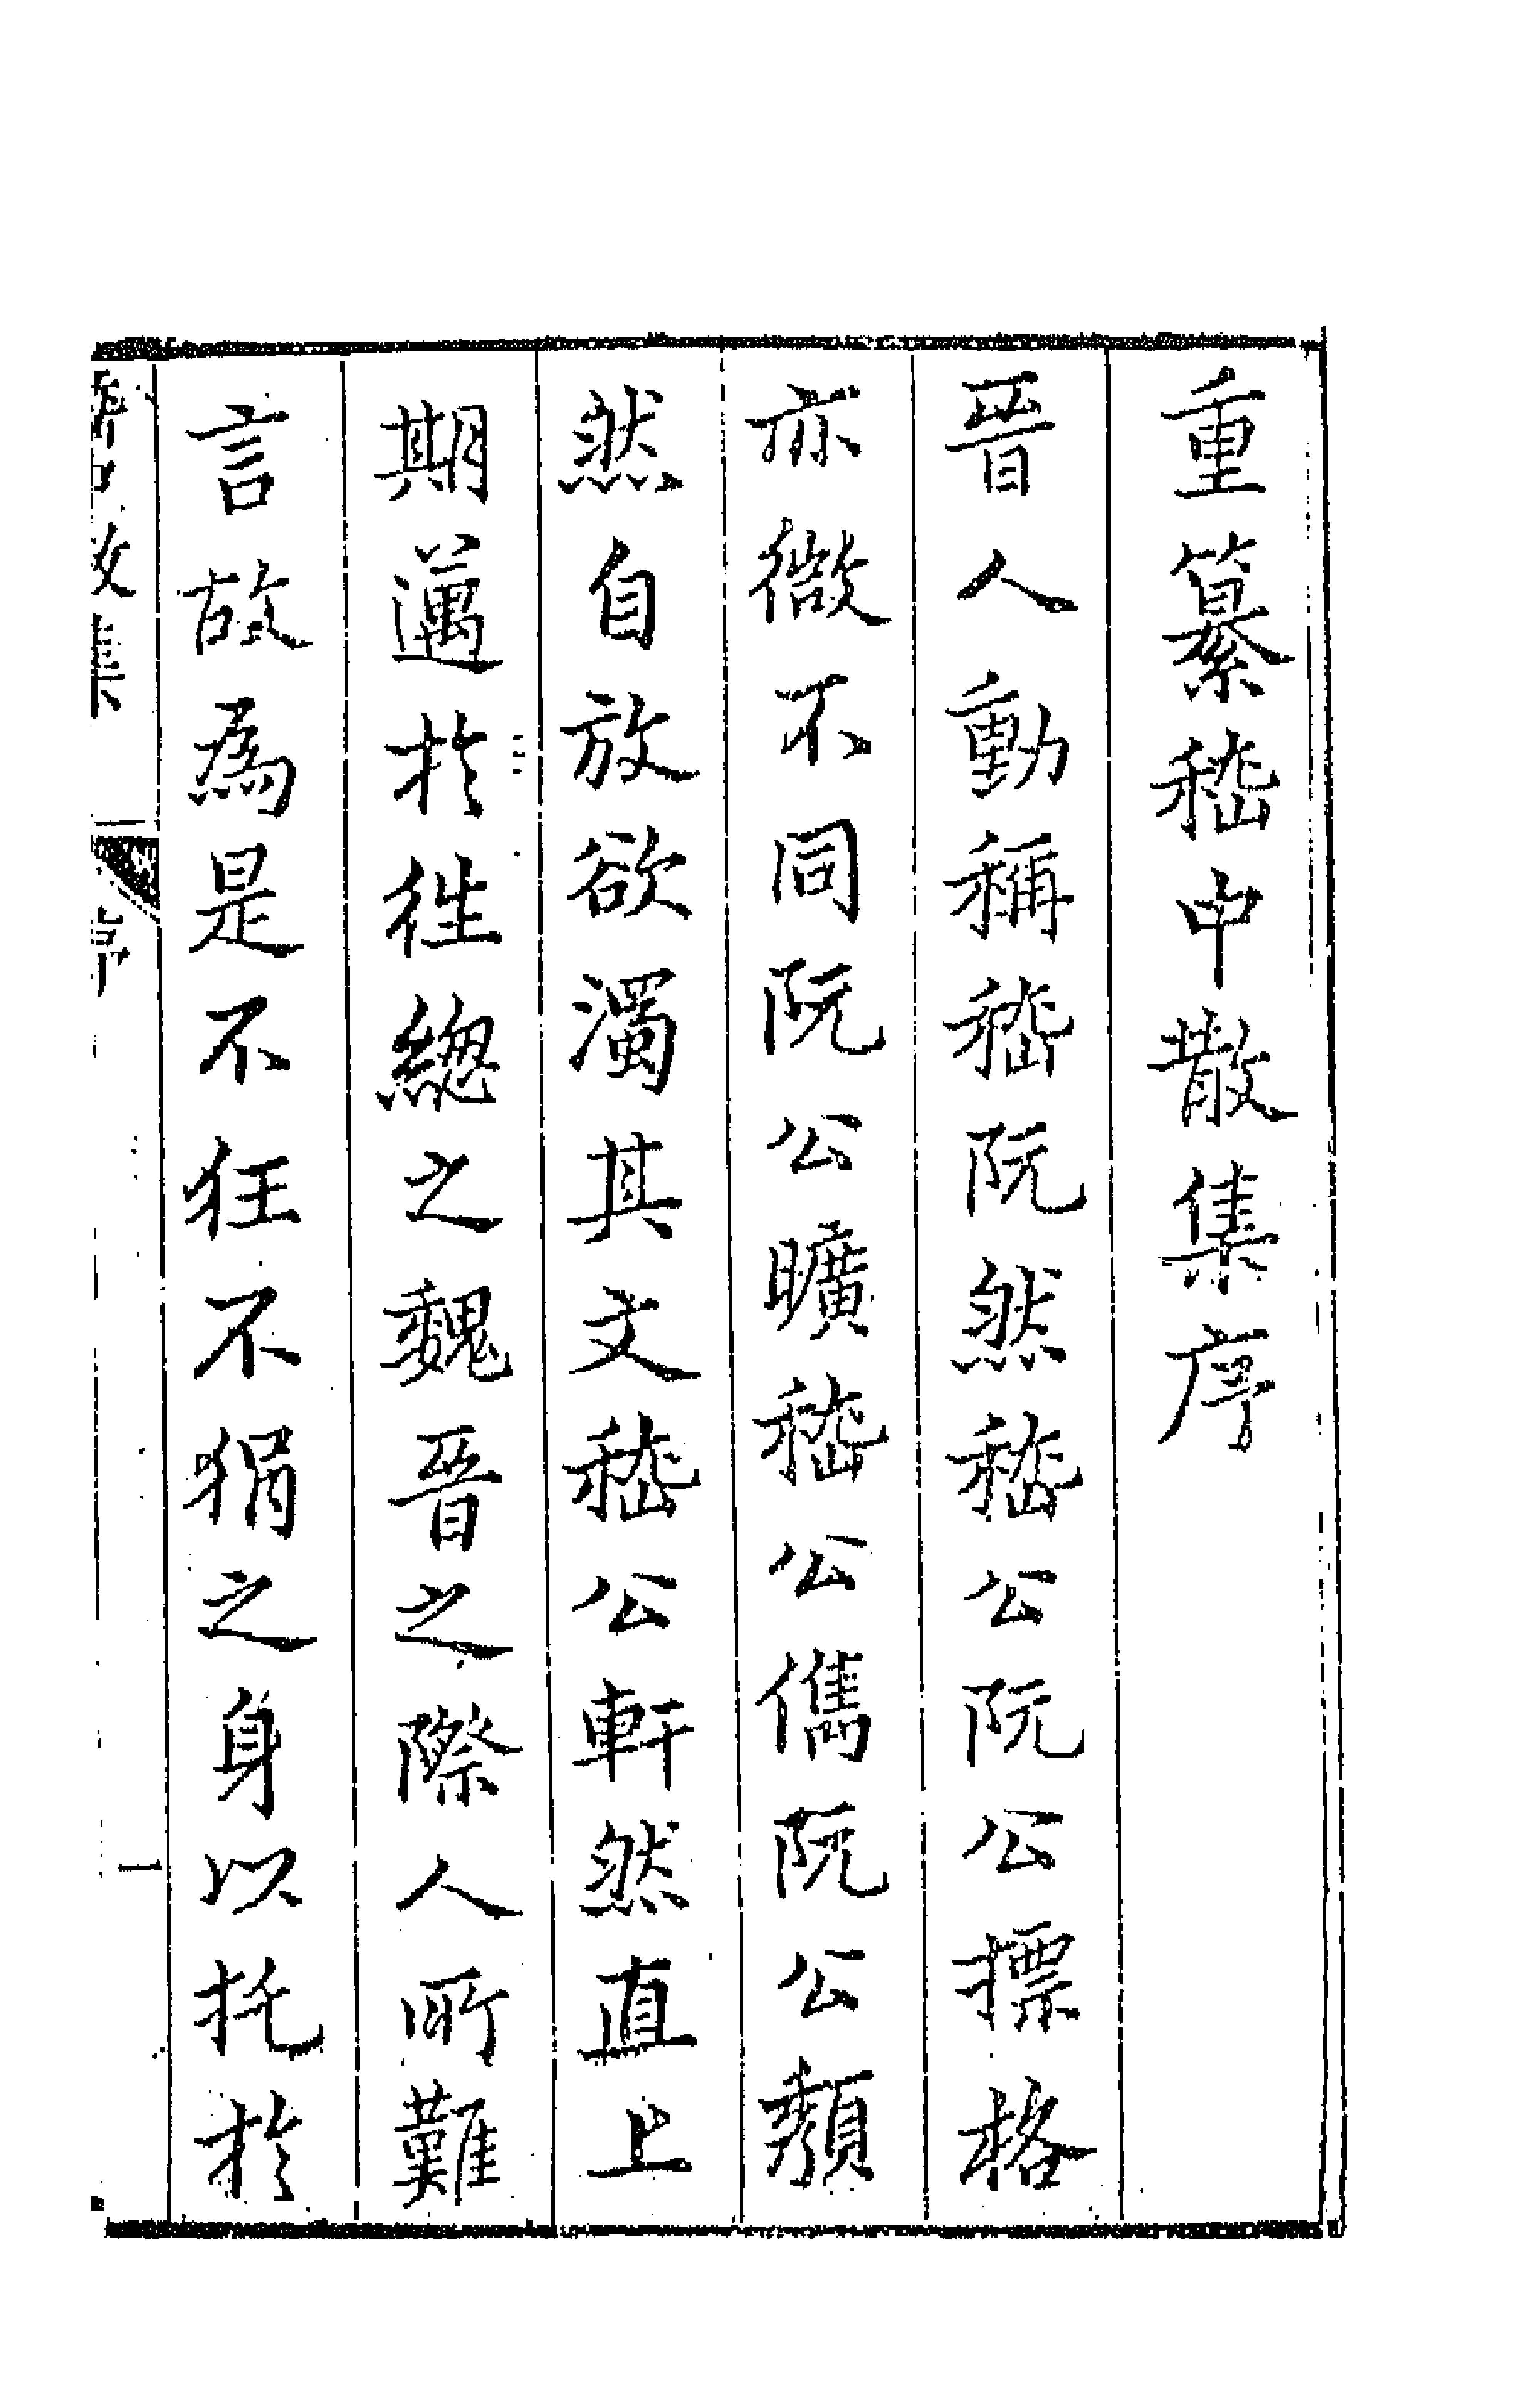 重纂嵇中散集序
晉人動稱嵇阮然嵇公阮公摽格
亦微不同阮公曠嵇公儁阮公頹
然自放欲濁其文嵇公軒然直上
期邁於徃總之魏晉之際人所難
言故爲是不狂不狷之身以托於
嵇中散集
序
一